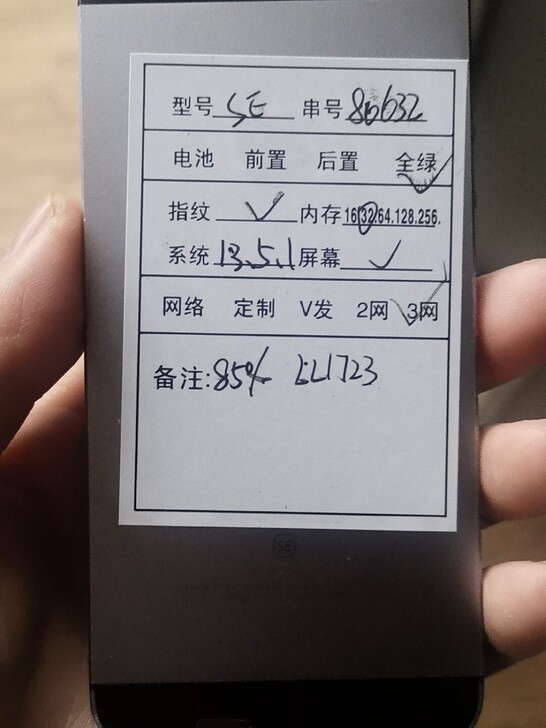 型号 SE 串号 86632
电池 前置 后置 全绿
指纹 ✓ 内存 16.32.64.128.256.
系统 13.5.1 屏幕 ✓
网络 定制 V发 2网 3网
备注: 85% LL1723
SE